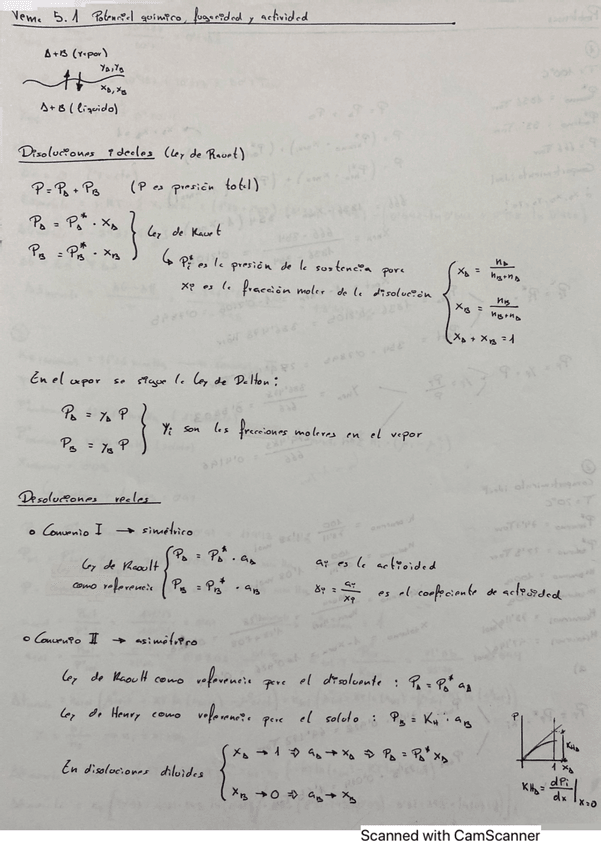 Tema 5.1 Potencial químico, fugacidad y actividad
A+B (vapor)
y_A, y_B
x_A, x_B
A+B (líquido)
Disoluciones ideales (Ley de Raoult)
P = P_A + P_B (P es presión total)
P_A = P_A^* · x_A
P_B = P_B^* · x_B
Ley de Raoult
P_i^* es la presión de la sustancia pura
x_i es la fracción molar de la disolución
x_A = n_A / (n_B + n_A)
x_B = n_B / (n_B + n_A)
x_A + x_B = 1
En el vapor se sigue la Ley de Dalton:
P_A = y_A P
P_B = y_B P
y_i son las fracciones molares en el vapor
Disoluciones reales
o Convenio I → simétrico
Ley de Raoult como referencia
P_A = P_A^* · a_A
P_B = P_B^* · a_B
a_i es la actividad
γ_i = a_i / x_i es el coeficiente de actividad
o Convenio II → asimétrico
Ley de Raoult como referencia para el disolvente : P_A = P_A^* a_A
Ley de Henry como referencia para el soluto : P_B = K_H · a_B
En disoluciones diluidas
x_A → 1 ⇒ a_A → x_A ⇒ P_A = P_A^* x_A
x_B → 0 ⇒ a_B → x_B
P
K_HB
1 x_B
K_HB = dP_i / dx |x=0
Scanned with CamScanner